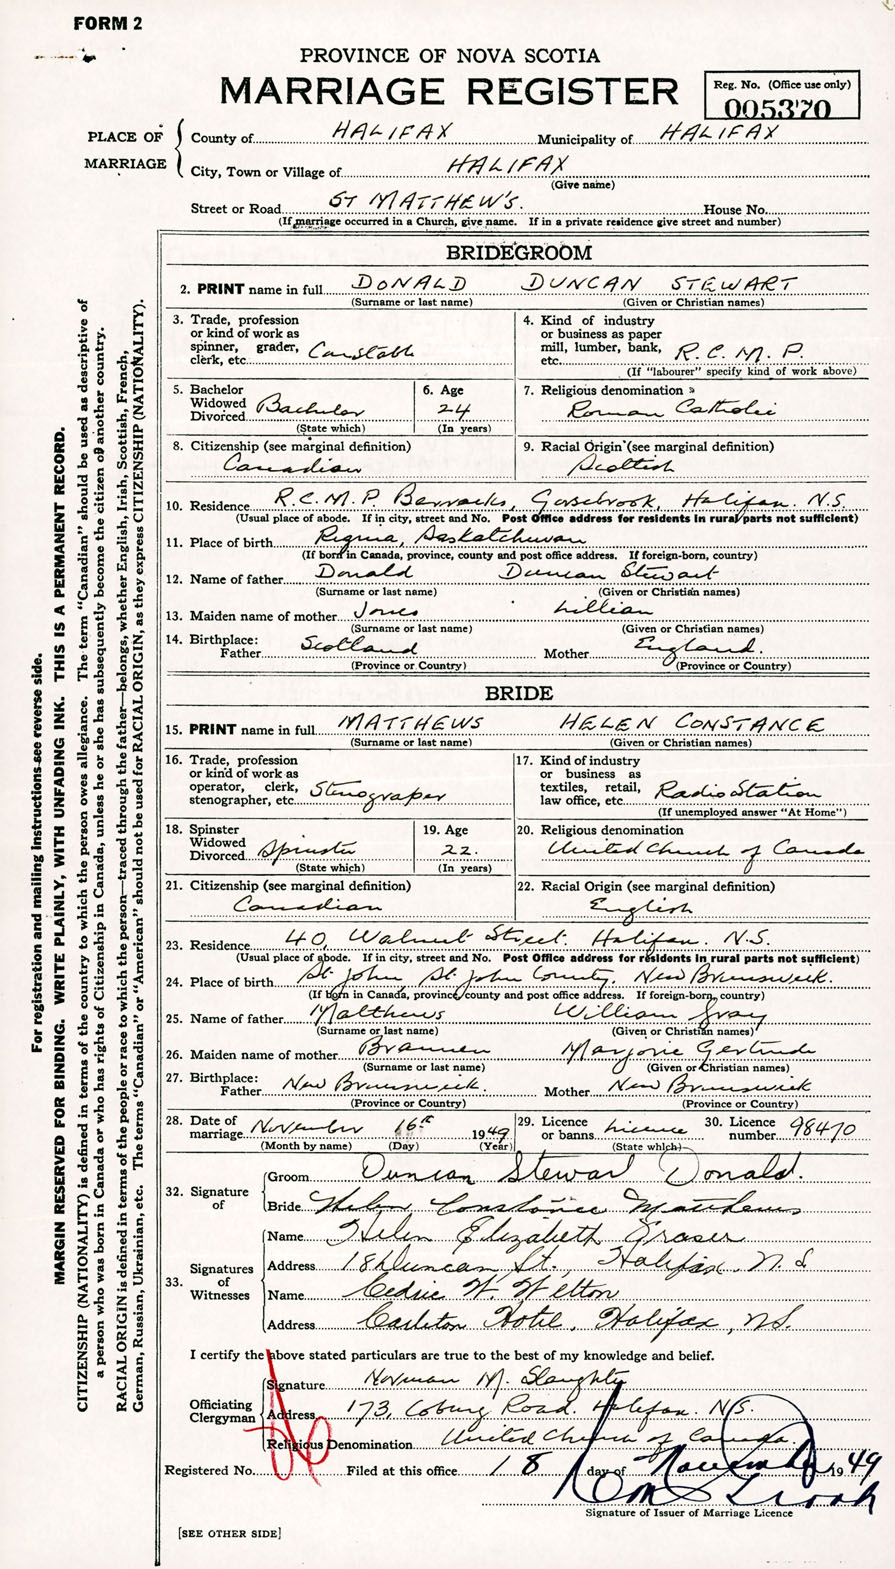 FORM 2
PROVINCE OF NOVA SCOTIA
MARRIAGE REGISTER
Reg. No. (Office use only)
005370
PLACE OF MARRIAGE
County of HALIFAX Municipality of HALIFAX
City, Town or Village of HALIFAX
(Give name)
Street or Road ST MATTHEW'S. House No.
(If marriage occurred in a Church, give name. If in a private residence give street and number)
BRIDEGROOM
2. PRINT name in full DONALD DUNCAN STEWART
(Surname or last name) (Given or Christian names)
3. Trade, profession or kind of work as spinner, grader, clerk, etc. Constable
4. Kind of industry or business as paper mill, lumber, bank, etc. R.C.M.P.
(If "labourer" specify kind of work above)
5. Bachelor Widowed Divorced Bachelor
(State which)
6. Age 24
(In years)
7. Religious denomination Roman Catholic
8. Citizenship (see marginal definition) Canadian
9. Racial Origin (see marginal definition) Scottish
10. Residence R.C.M.P. Barracks, Gorsebrook, Halifax. N.S.
(Usual place of abode. If in city, street and No. Post Office address for residents in rural parts not sufficient)
11. Place of birth Regina, Saskatchewan
(If born in Canada, province, county and post office address. If foreign-born, country)
12. Name of father Donald Duncan Stewart
(Surname or last name) (Given or Christian names)
13. Maiden name of mother Jones Lillian
(Surname or last name) (Given or Christian names)
14. Birthplace: Father Scotland Mother England.
(Province or Country) (Province or Country)
BRIDE
15. PRINT name in full MATTHEWS HELEN CONSTANCE
(Surname or last name) (Given or Christian names)
16. Trade, profession or kind of work as operator, clerk, stenographer, etc. Stenograper
17. Kind of industry or business as textiles, retail, law office, etc. Radio Station
(If unemployed answer "At Home")
18. Spinster Widowed Divorced Spinster
(State which)
19. Age 22.
(In years)
20. Religious denomination United Church of Canada
21. Citizenship (see marginal definition) Canadian
22. Racial Origin (see marginal definition) English
23. Residence 40, Walnut Street. Halifax. N.S.
(Usual place of abode. If in city, street and No. Post Office address for residents in rural parts not sufficient)
24. Place of birth St. John, St. John County, New Brunswick.
(If born in Canada, province, county and post office address. If foreign-born, country)
25. Name of father Matthews William Gray
(Surname or last name) (Given or Christian names)
26. Maiden name of mother Brannen Marjorie Gertrude
(Surname or last name) (Given or Christian names)
27. Birthplace: Father New Brunswick. Mother New Brunswick
(Province or Country) (Province or Country)
28. Date of marriage November 16th 1949
(Month by name) (Day) (Year)
29. Licence or banns Licence
(State which)
30. Licence number 98470
32. Signature of
Groom Duncan Stewart Donald.
Bride Helen Constance Matthews
33. Signatures of Witnesses
Name Helen Elizabeth Fraser
Address 18 Duncan St., Halifax, N.S
Name Cedric W. Welton
Address Carleton Hotel, Halifax, N.S.
I certify the above stated particulars are true to the best of my knowledge and belief.
Officiating Clergyman
Signature Norman M. Slaughter
Address 173, Coburg Road. Halifax. N.S.
Religious Denomination United Church of Canada.
Registered No. Filed at this office 18 day of November 1949
Signature of Issuer of Marriage Licence
[SEE OTHER SIDE]
For registration and mailing instructions see reverse side.
MARGIN RESERVED FOR BINDING. WRITE PLAINLY, WITH UNFADING INK. THIS IS A PERMANENT RECORD.
CITIZENSHIP (NATIONALITY) is defined in terms of the country to which the person owes allegiance. The term "Canadian" should be used as descriptive of
a person who was born in Canada or who has rights of Citizenship in Canada, unless he or she has subsequently become the citizen of another country.
RACIAL ORIGIN is defined in terms of the people or race to which the person—traced through the father—belongs, whether English, Irish, Scottish, French,
German, Russian, Ukrainian, etc. The terms "Canadian" or "American" should not be used for RACIAL ORIGIN, as they express CITIZENSHIP (NATIONALITY).